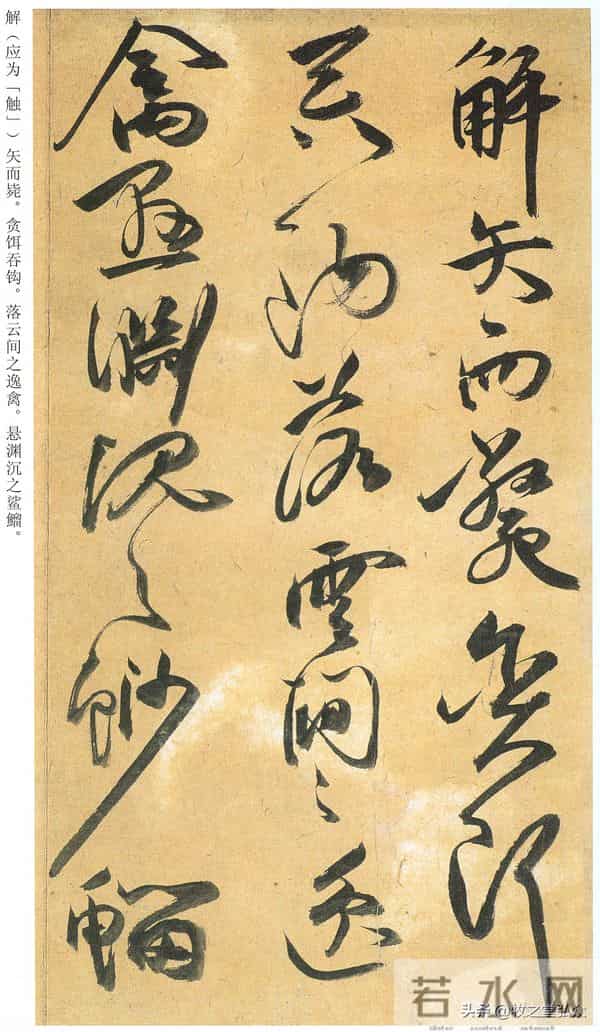 解矢而斃貪餌
吞鉤落雲間之逸
禽懸淵沉之魦鰡
解（应为「触」）矢而毙。贪饵吞钩。落云间之逸禽。悬渊沉之鲨鰡。
若水网
头条